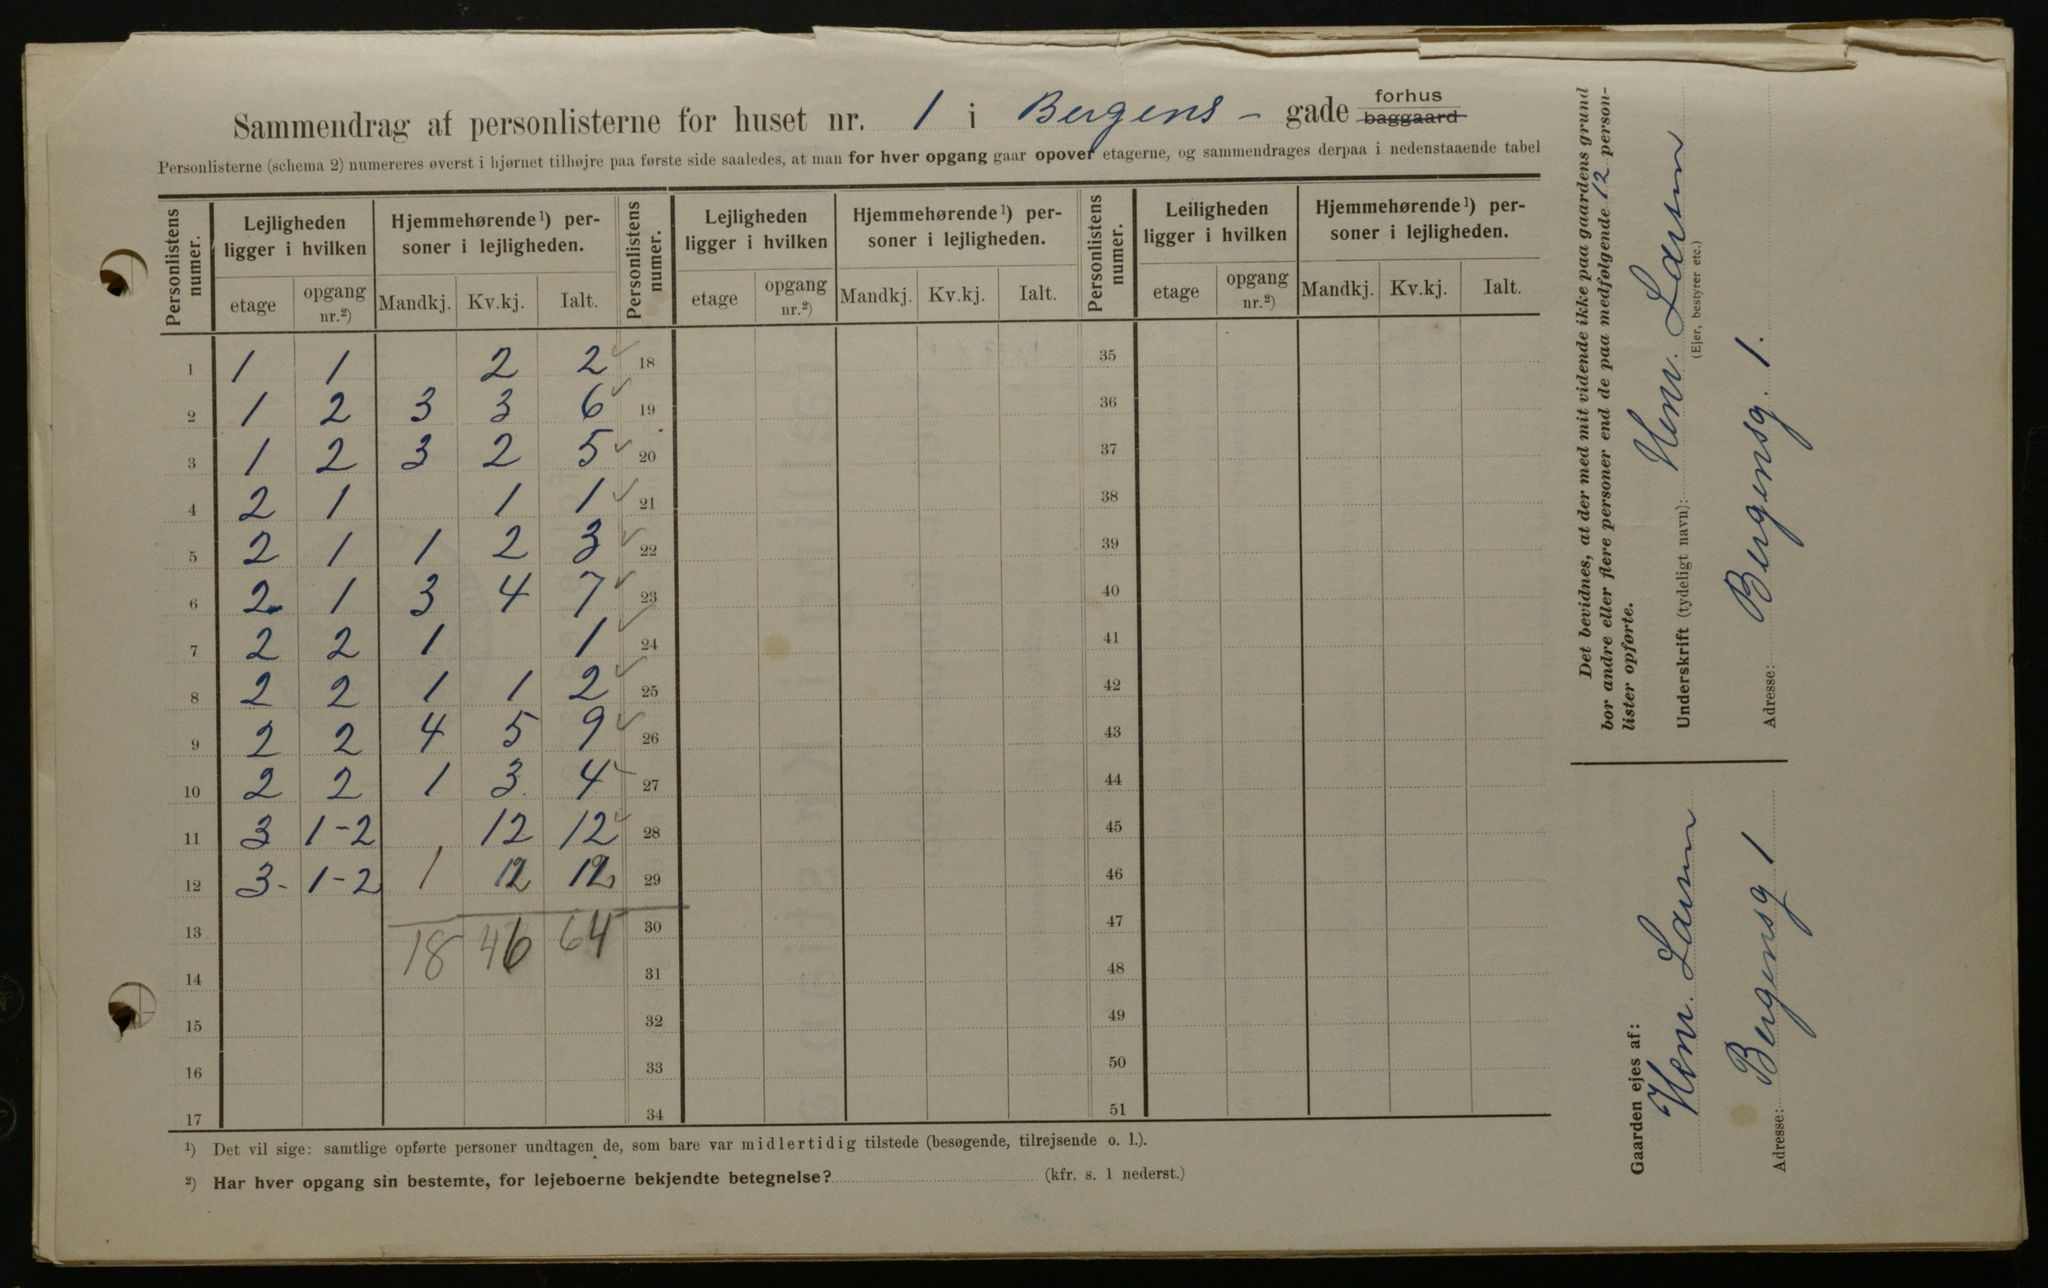 Sammendrag af personlisterne for huset nr. 1 i Bergens- gade forhus
baggaard
Personlisterne (schema 2) numereres øverst i hjørnet tilhøjre paa første side saaledes, at man for hver opgang gaar opover etagerne, og sammendrages derpaa i nedenstaaende tabel
Personlistens numer. Lejligheden ligger i hvilken Hjemmehørende¹) personer i lejligheden. Personlistens numer. Lejligheden ligger i hvilken Hjemmehørende¹) personer i lejligheden. Personlistens numer. Leiligheden ligger i hvilken Hjemmehørende¹) personer i lejligheden.
etage opgang nr.²) Mandkj. Kv.kj. Ialt. etage opgang nr.²) Mandkj. Kv.kj. Ialt. etage opgang nr.²) Mandkj. Kv.kj. Ialt.
1 1 1 2 2 18 35
2 1 2 3 3 6 19 36
3 1 2 3 2 5 20 37
4 2 1 1 1 21 38
5 2 1 1 2 3 22 39
6 2 1 3 4 7 23 40
7 2 2 1 1 24 41
8 2 2 1 1 2 25 42
9 2 2 4 5 9 26 43
10 2 2 1 3 4 27 44
11 3 1-2 12 12 28 45
12 3- 1-2 1 11 12 29 46
13 18 46 64 30 47
14 31 48
15 32 49
16 33 50
17 34 51
¹) Det vil sige: samtlige opførte personer undtagen de, som bare var midlertidig tilstede (besøgende, tilrejsende o. l.).
²) Har hver opgang sin bestemte, for lejeboerne bekjendte betegnelse? (kfr. s. 1 nederst.)
Det bevidnes, at der med mit vidende ikke paa gaardens grund
bor andre eller flere personer end de paa medfølgende 12 person-
lister opførte.
Underskrift (tydeligt navn): Hen. Larsen
(Ejer, bestyrer etc.)
Adresse: Bergensg. 1.
Gaarden ejes af:
Hen. Larsen
Adresse: Bergensg 1